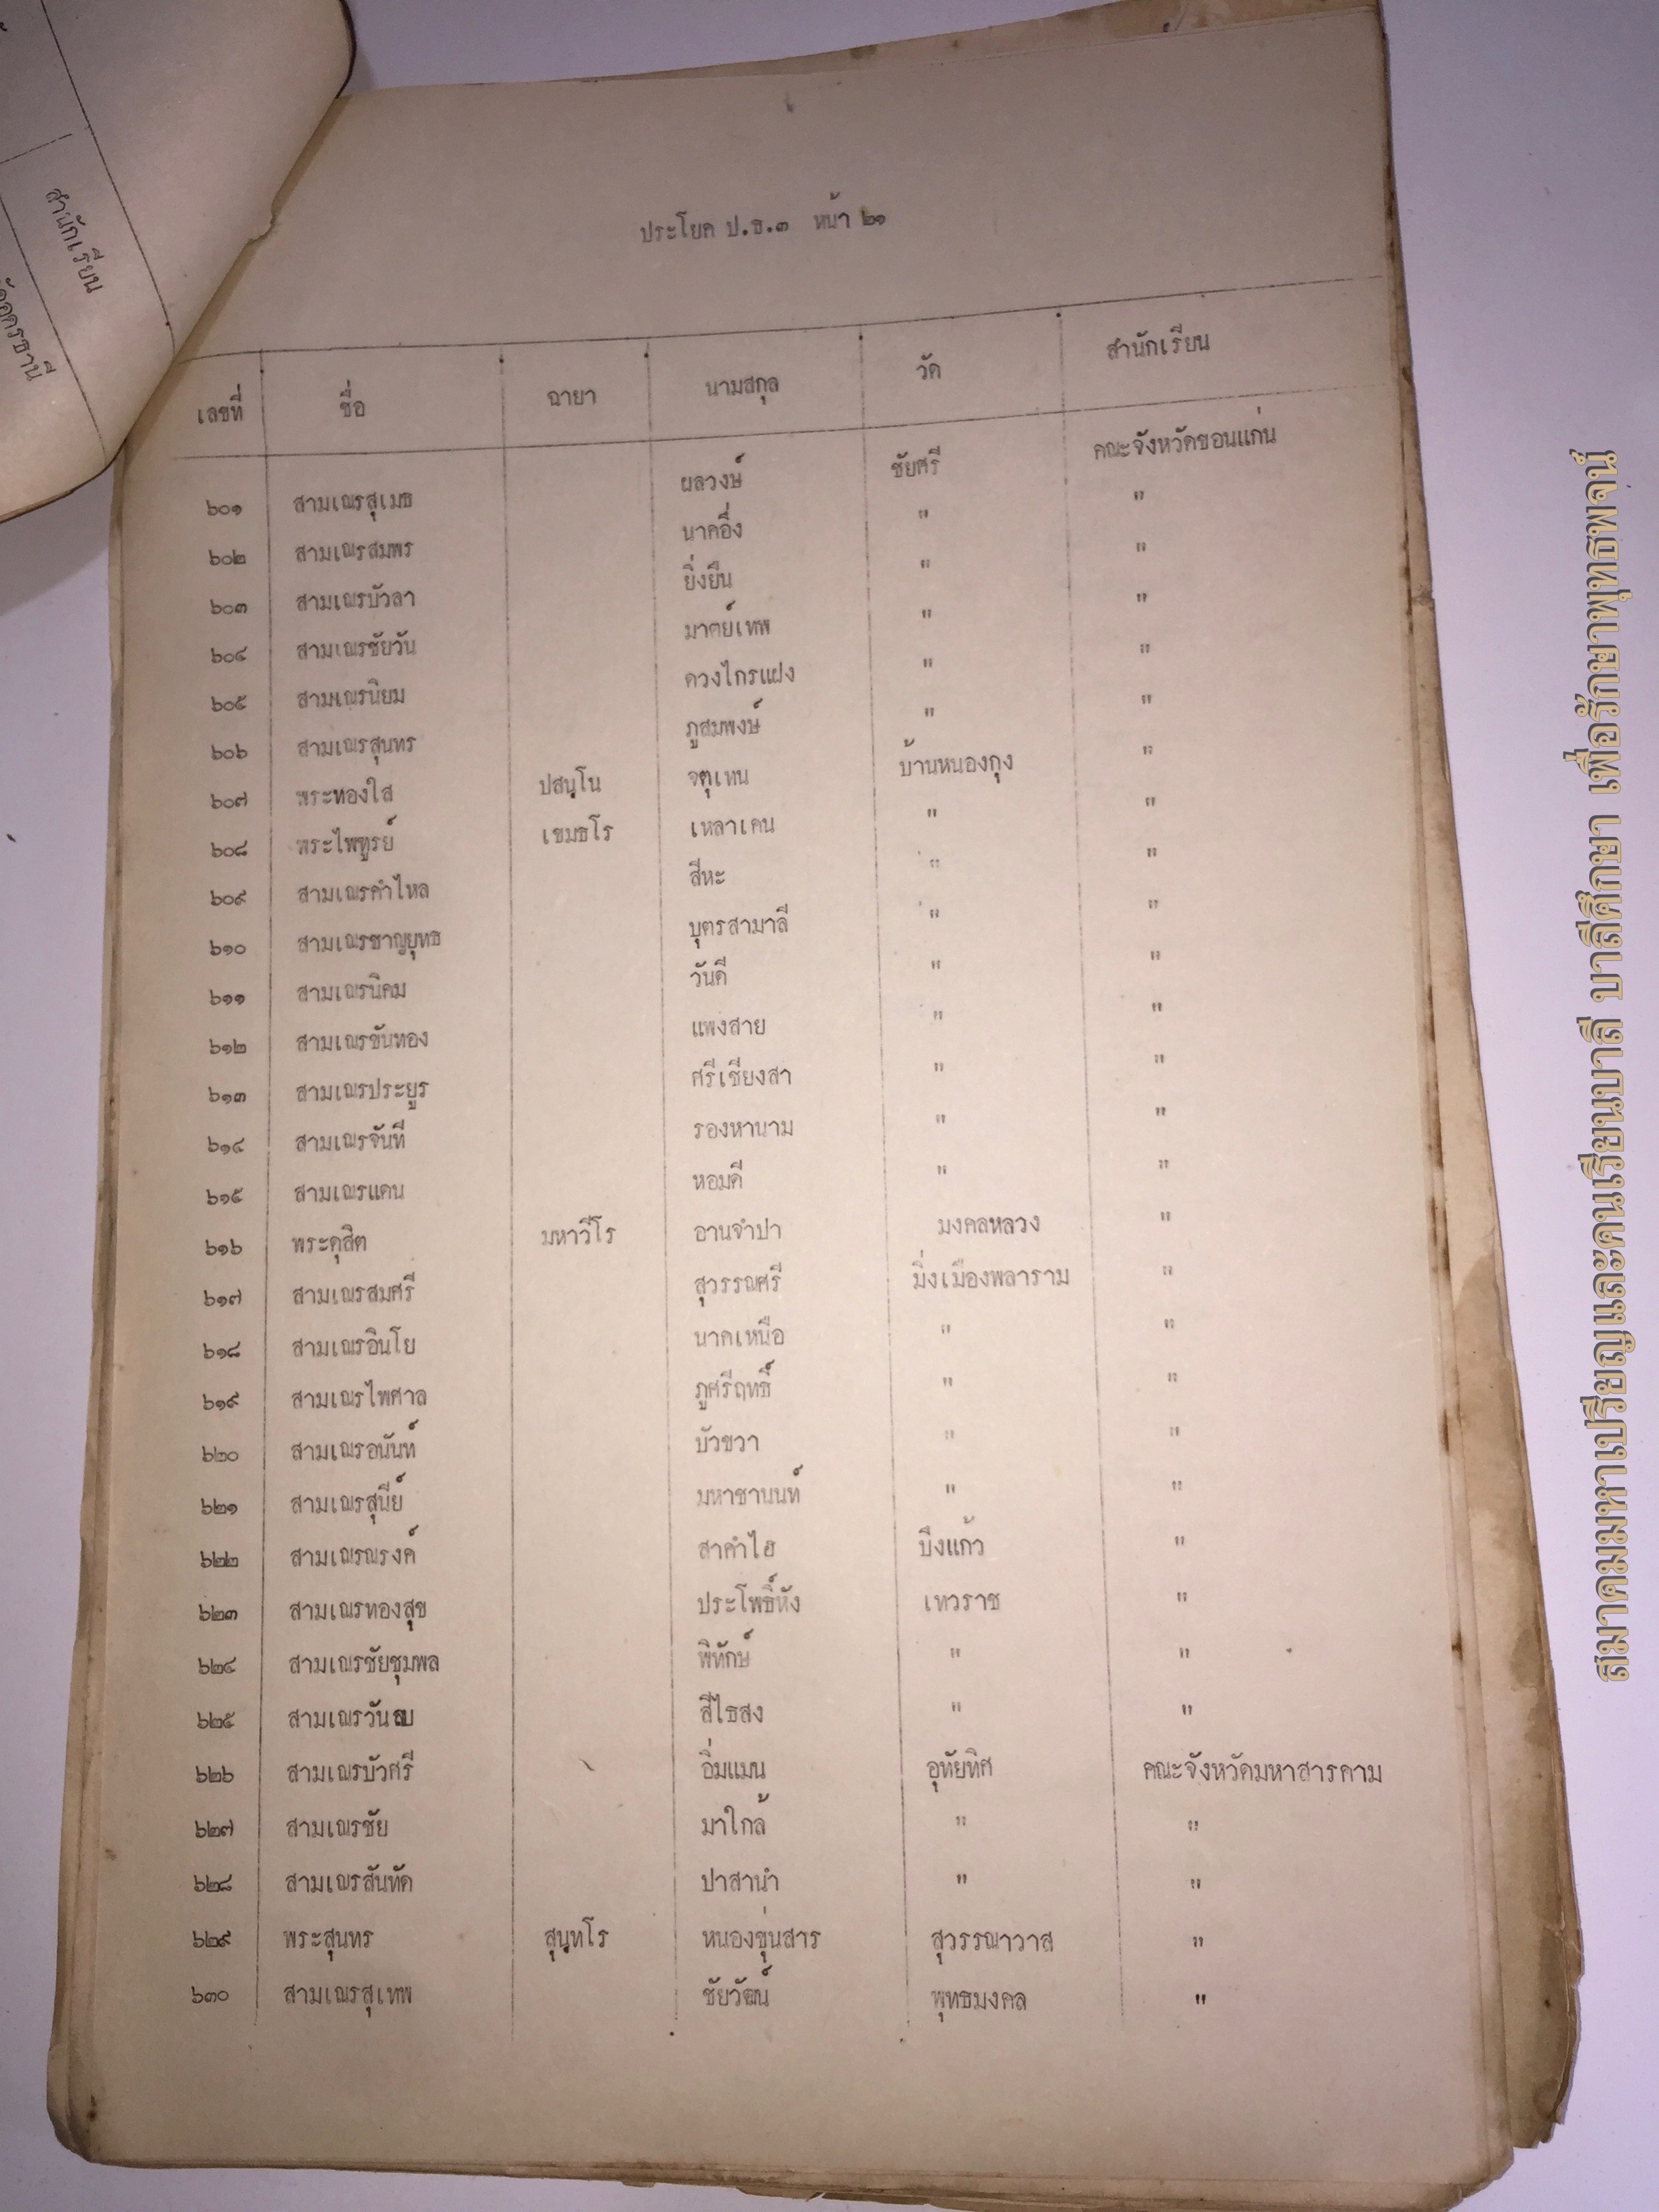 สำนักเรียน
ประโยค ป.ธ.๓ หน้า ๒๑
เลขที่ ชื่อ ฉายา นามสกุล วัด สำนักเรียน
๖๐๑ สามเณรสุเมธ ผลวงษ์ ชัยศรี คณะจังหวัดขอนแก่น
๖๐๒ สามเณรสมพร นาคอึ่ง " "
๖๐๓ สามเณรบัวลา ยิ่งยืน " "
๖๐๔ สามเณรชัยวัน มาตย์เทพ " "
๖๐๕ สามเณรนิยม ดวงไกรแฝง " "
๖๐๖ สามเณรสุนทร ภูสมพงษ์ " "
๖๐๗ พระทองใส ปสนฺโน จตุเทน บ้านหนองกุง "
๖๐๘ พระไพฑูรย์ เขมธโร เหลาเคน " "
๖๐๙ สามเณรคำไหล สีหะ " "
๖๑๐ สามเณรชาญยุทธ บุตรสามาลี " "
๖๑๑ สามเณรนิคม วันดี " "
๖๑๒ สามเณรขันทอง แพงสาย " "
๖๑๓ สามเณรประยูร ศรีเชียงสา " "
๖๑๔ สามเณรจันที รองหานาม " "
๖๑๕ สามเณรแดน หอมดี " "
๖๑๖ พระดุสิต มหาวีโร อานจำปา มงคลหลวง "
๖๑๗ สามเณรสมศรี สุวรรณศรี มิ่งเมืองพลาราม "
๖๑๘ สามเณรอินโย นาคเหนือ " "
๖๑๙ สามเณรไพศาล ภูศรีฤทธิ์ " "
๖๒๐ สามเณรอนันท์ บัวขวา " "
๖๒๑ สามเณรสุนีย์ มหาชานนท์ " "
๖๒๒ สามเณรณรงค์ สาคำไฮ บึงแก้ว "
๖๒๓ สามเณรทองสุข ประโพธิ์หัง เทวราช "
๖๒๔ สามเณรชัยชุมพล พิทักษ์ " "
๖๒๕ สามเณรวัน สีไธสง " "
๖๒๖ สามเณรบัวศรี อิ่มแมน อุทัยทิศ คณะจังหวัดมหาสารคาม
๖๒๗ สามเณรชัย มาใกล้ " "
๖๒๘ สามเณรสันทัด ปาสานำ " "
๖๒๙ พระสุนทร สุนฺทโร หนองขุ่นสาร สุวรรณาวาส "
๖๓๐ สามเณรสุเทพ ชัยวัฒน์ พุทธมงคล "
สมาคมมหาเปรียญและคนเรียนบาลี บาลีศึกษา เพื่อรักษาพุทธพจน์